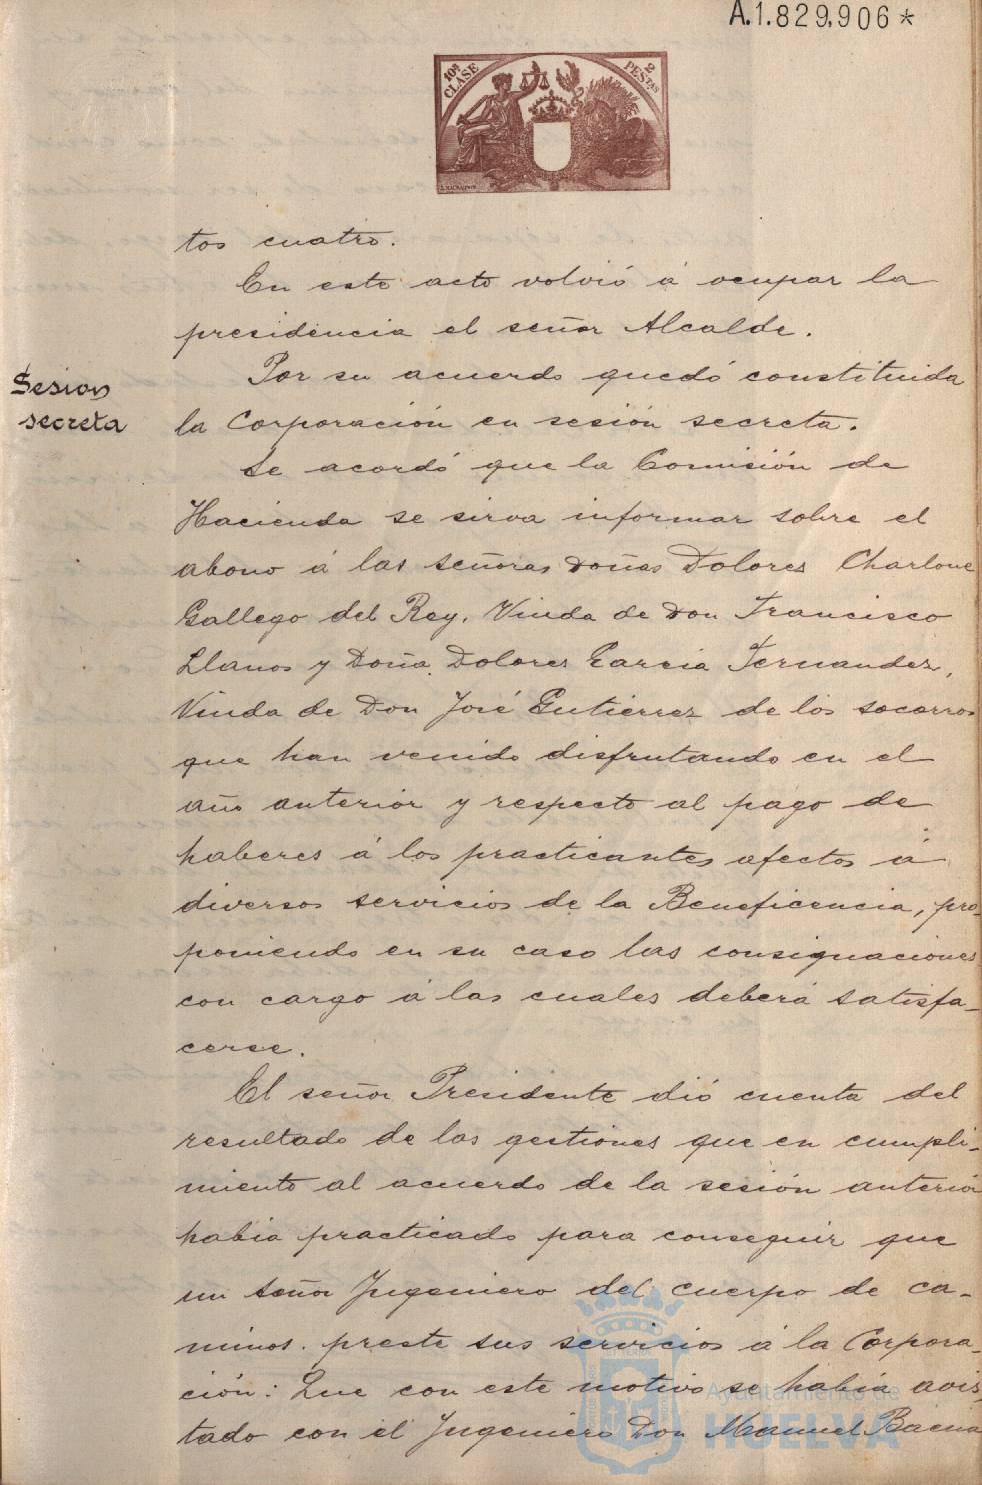 A.1.829.906*
10ª CLASE
2 PESTAS
tos cuatro.
En este acto volvió á ocupar la
presidencia el señor Alcalde.
Sesion
secreta
Por su acuerdo quedó constituida
la Corporación en sesión secreta.
Se acordó que la Comisión de
Hacienda se sirva informar sobre el
abono á las señoras Doñas Dolores Charlone
Gallego del Rey, Viuda de Don Francisco
Llanos y Doña Dolores Garcia Fernandez,
Viuda de Don José Gutiérrez de los socorros
que han venido disfrutando en el
año anterior y respecto al pago de
haberes á los practicantes afectos á
diversos servicios de la Beneficencia, pro-
poniendo en su caso las consignaciones
con cargo á las cuales deberá satisfa-
cerse.
El señor Presidente dió cuenta del
resultado de las gestiones que en cumpli-
miento al acuerdo de la sesión anterior
habia practicado para conseguir que
un señor Ingeniero del cuerpo de ca-
minos preste sus servicios á la Corpora-
ción: Que con este motivo se habia avis-
tado con el Ingeniero Don Manuel Baena
Ayuntamiento de
HUELVA